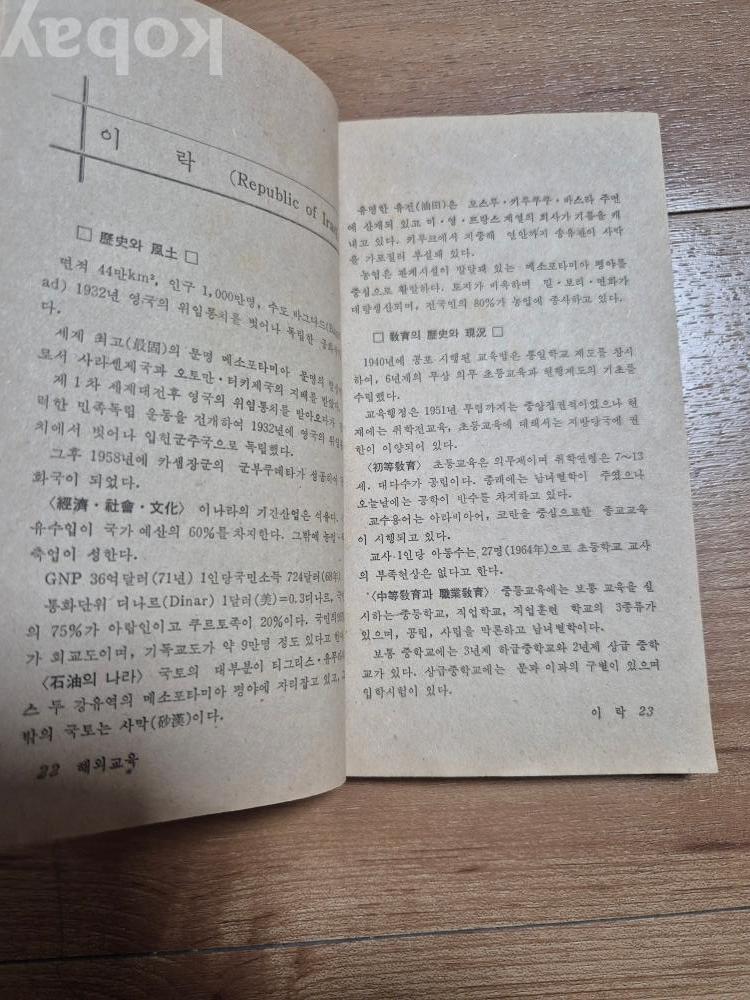 kobay
이 락
(Republic of Iraq
□ 歷史와 風土 □
면적 44만km², 인구 1,000만명, 수도 바그다드
ad) 1932년 영국의 위임통치를 벗어나 독립한
다.
세계 최고(最固)의 문명 메소포타미아 문명의
로서 사라쎈제국과 오토만·터키제국의 지배를
제 1차 세계대전후 영국의 위임통치를 받아오다가
력한 민족독립 운동을 전개하여 1932년에 영국의 위임
치에서 벗어나 입헌군주국으로 독립했다.
그후 1958년에 카셈장군의 군부쿠데타가 성공하여
화국이 되었다.
〈經濟·社會·文化〉 이나라의 기간산업은 석유다.
유수입이 국가 예산의 60%를 차지한다. 그밖에 농업·
축업이 성한다.
GNP 36억달러(71년) 1인당국민소득 724달러(68年)
통화단위 디나르(Dinar) 1달러(美)=0.3디나르,
의 75%가 아랍인이고 쿠르토족이 20%이다. 국민의
가 회교도이며, 기독교도가 약 9만명 정도 있다고
〈石油의 나라〉 국토의 대부분이 티그리스·유푸
스 두 강유역의 메소포타미아 평야에 자리잡고 있고,
밖의 국토는 사막(砂漠)이다.
22 해외교육
유명한 유전(油田)은 모스루·키루쿠쿠·바스라 주변
에 산재되 있고 미·영·프랑스 계열의 회사가 기름을 캐
내고 있다. 키루크에서 지중해 연안까지 송유관이 사막
을 가로질러 부설돼 있다.
농업은 관계시설이 발달돼 있는 메소포타미아 평야를
중심으로 활발하다. 토지가 비옥하며 밀·보리·면화가
대량생산되며, 전국민의 80%가 농업에 종사하고 있다.
□ 敎育의 歷史와 現況 □
1940년에 공포 시행된 교육법은 통일학교 제도를 창시
하여, 6년제의 무상 의무 초등교육과 현행제도의 기초를
수립했다.
교육행정은 1951년 무렵까지는 중앙집권적이었으나 현
재에는 취학전교육, 초등교육에 대해서는 지방당국에 권
한이 이양되어 있다.
〈初等敎育〉 초등교육은 의무제이며 취학연령은 7~13
세. 대다수가 공립이다. 종래에는 남녀별학이 주였으나
오늘날에는 공학이 반수를 차지하고 있다.
교수용어는 아라비아어, 코란을 중심으로한 종교교육
이 시행되고 있다.
교사 1인당 아동수는 27명(1964年)으로 초등학교 교사
의 부족현상은 없다고 한다.
〈中等敎育과 職業敎育〉 중등교육에는 보통 교육을 실
시하는 중등학교, 직업학교, 직업훈련 학교의 3종류가
있으며, 공립, 사립을 막론하고 남녀별학이다.
보통 중학교에는 3년제 하급중학교와 2년제 상급 중학
교가 있다. 상급중학교에는 문과 이과의 구별이 있으며
입학시험이 있다.
이 락 23